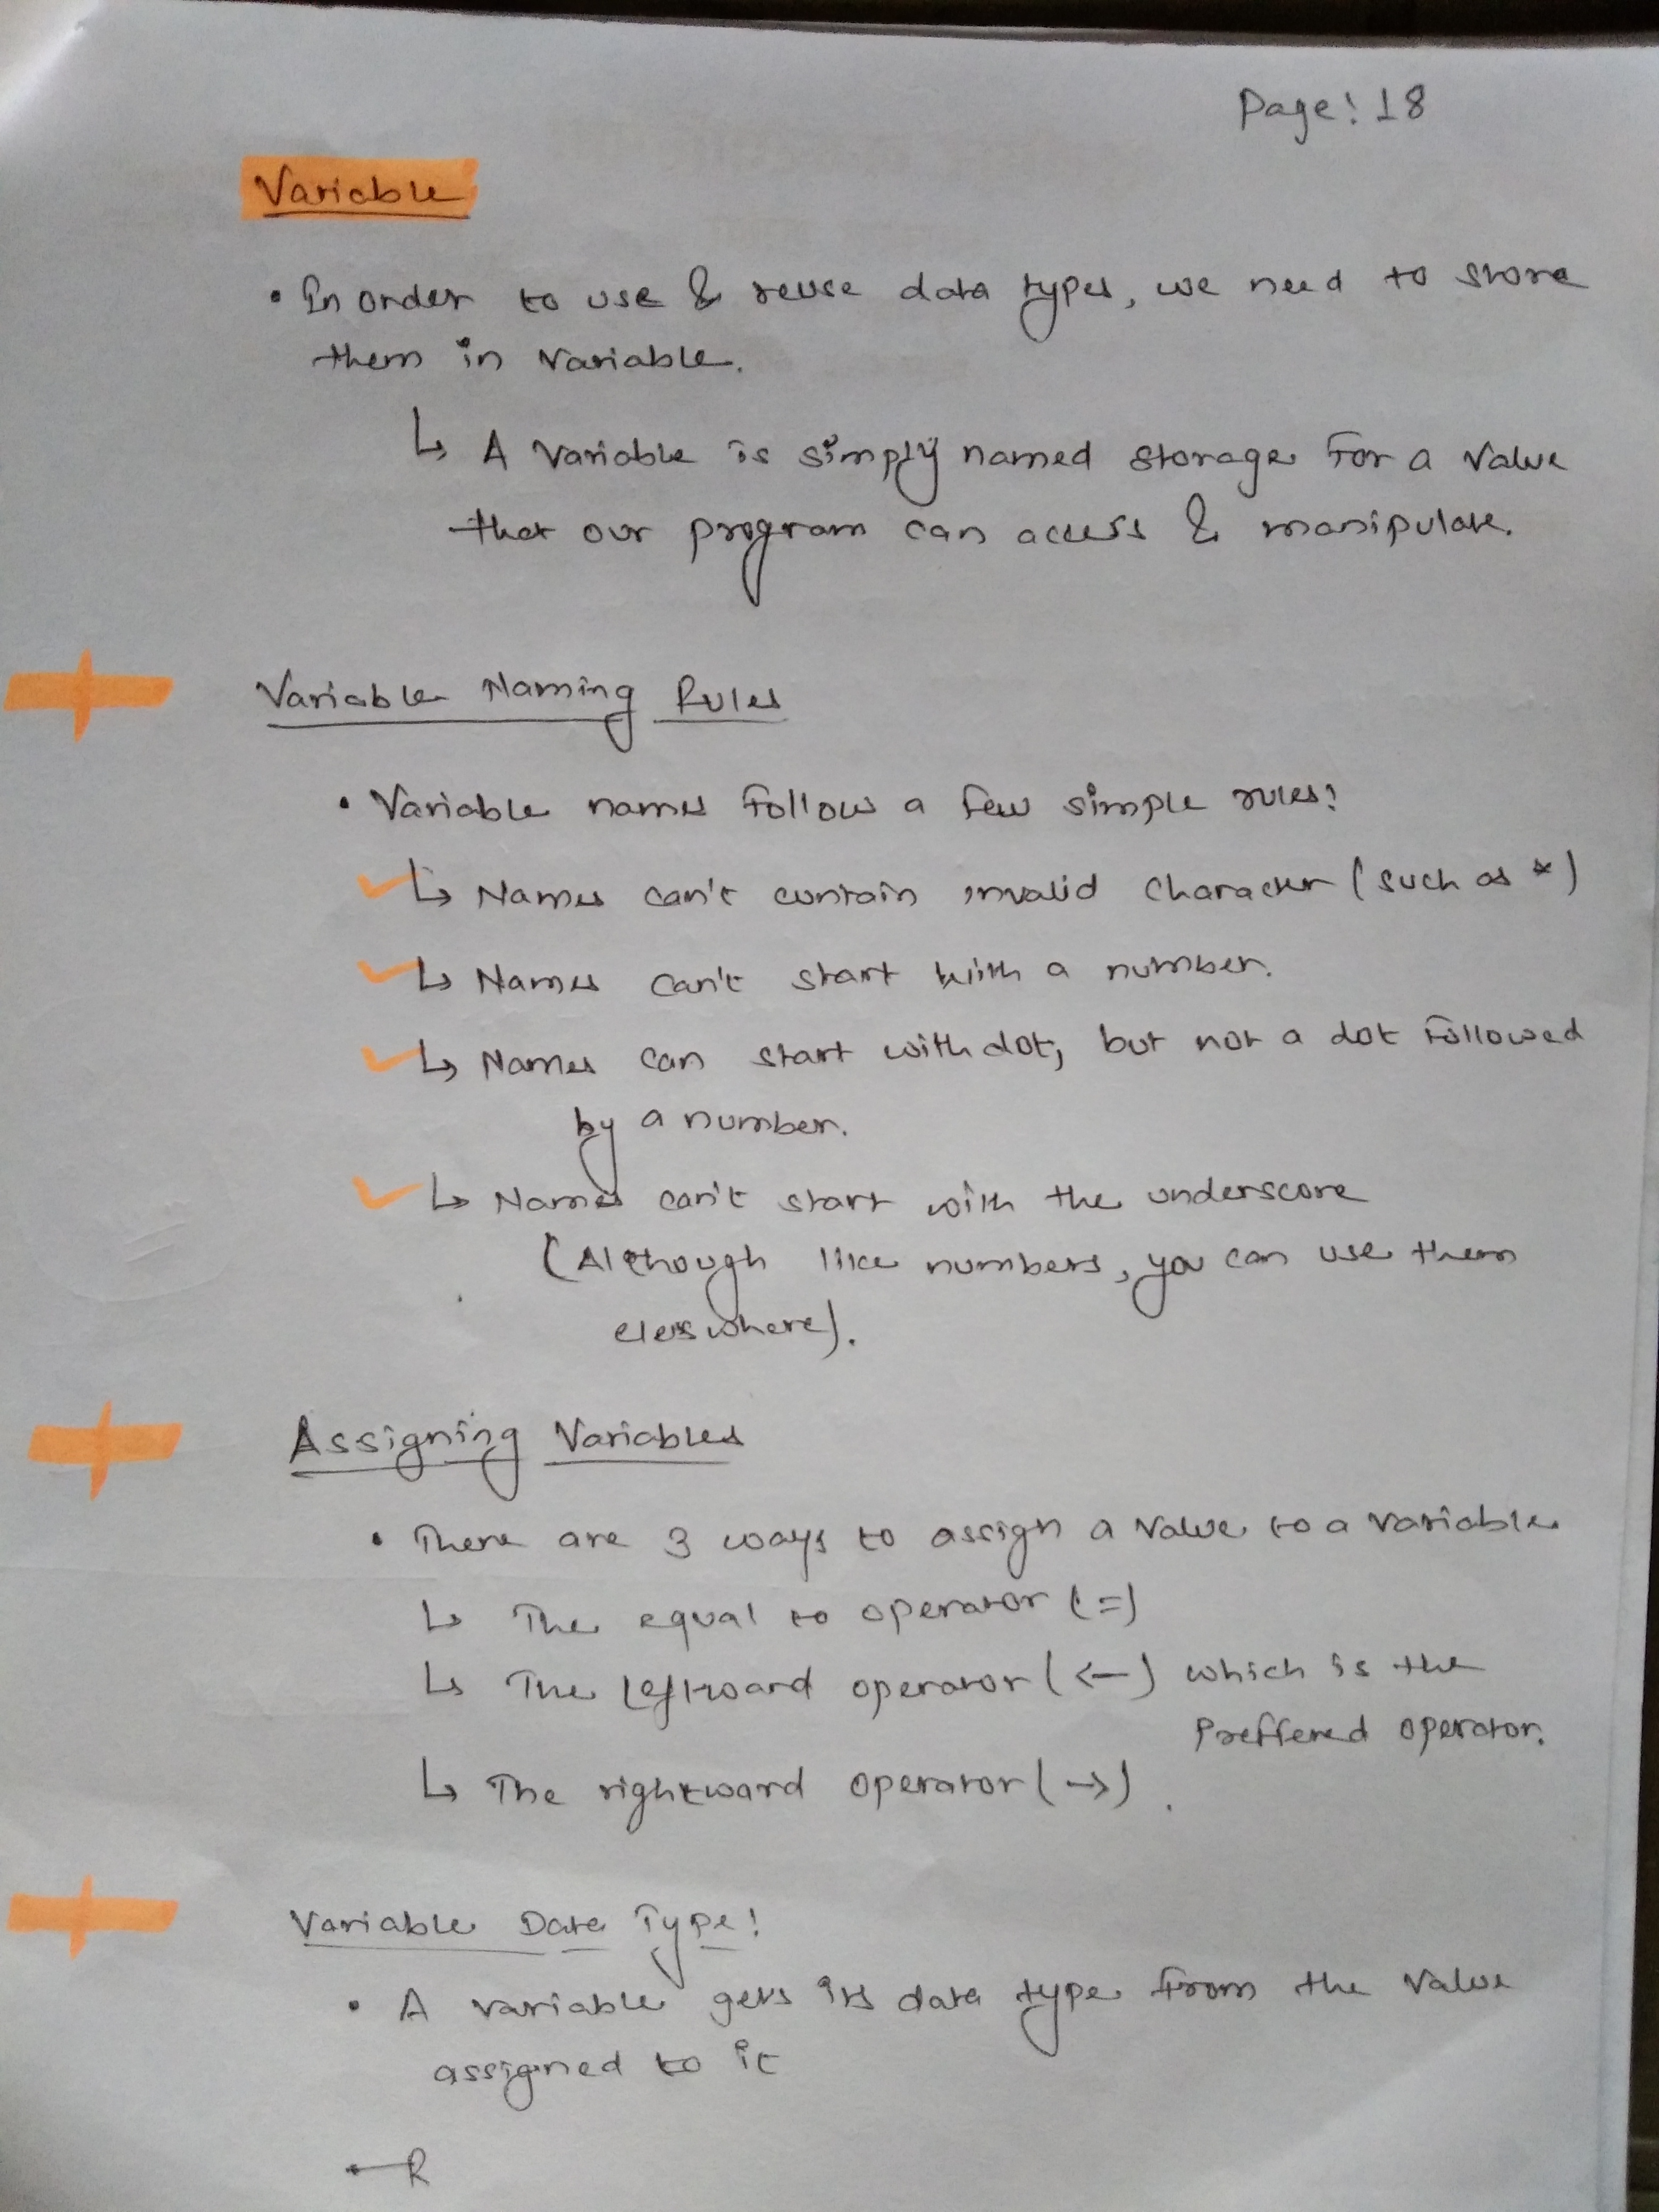 Page: 18
Variable
• In order to use & reuse data types, we need to store
them in Variable.
↳ A Variable is simply named storage For a Value
that our program can access & manipulate.
Variable Naming Rules
• Variable names Follow a few simple rules:
↳ Names can't contain invalid Character (such as *)
↳ Names can't start with a number.
↳ Names can start with dot, but not a dot Followed
by a number.
↳ Names can't start with the underscore
(Although like numbers, you can use them
elsewhere).
Assigning Variables
• There are 3 ways to assign a Value to a Variable
↳ The equal to operator (=)
↳ The Leftward operator (←) which is the
Preffered operator.
↳ The rightward operator (→).
Variable Data Type:
• A variable gets its data type From the Value
assigned to it
R